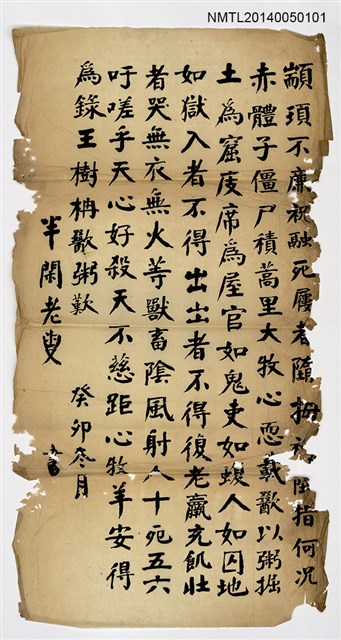 NMTL20140050101
顓頊不廉祝融死屨者隨拇 墮指何況
赤體子僵尸積蒿里大牧心惻載歠以粥掘
土為窟庋席為屋官如鬼吏如蝮人如囚地
如獄入者不得出出者不得復老羸充飢壯
者哭無衣無火等獸畜陰風射人十死五六
吁嗟乎天心好殺天不慈距心牧羊安得
為錄王樹枏歠粥歎
癸卯冬月
半閑老叟 書